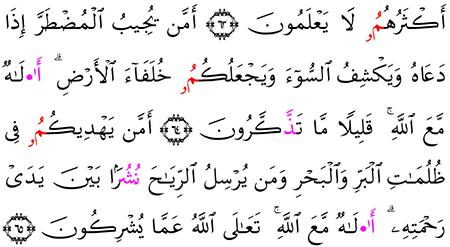 أَكْثَرُهُمُۥ لَا يَعْلَمُونَ ۝٦٣ أَمَّن يُجِيبُ ٱلْمُضْطَرَّ إِذَا
دَعَاهُ وَيَكْشِفُ ٱلسُّوٓءَ وَيَجْعَلُكُمُۥ خُلَفَآءَ ٱلْأَرْضِ ۗ أَا۬لَٰهٌ
مَّعَ ٱللَّهِ ۚ قَلِيلًا مَّا تَذَّكَّرُونَ ۝٦٤ أَمَّن يَهْدِيكُمُۥ فِى
ظُلُمَٰتِ ٱلْبَرِّ وَٱلْبَحْرِ وَمَن يُرْسِلُ ٱلرِّيَٰحَ نُشُرًۢا بَيْنَ يَدَىْ
رَحْمَتِهِۦٓ ۗ أَا۬لَٰهٌ مَّعَ ٱللَّهِ ۚ تَعَٰلَى ٱللَّهُ عَمَّا يُشْرِكُونَ ۝٦٥